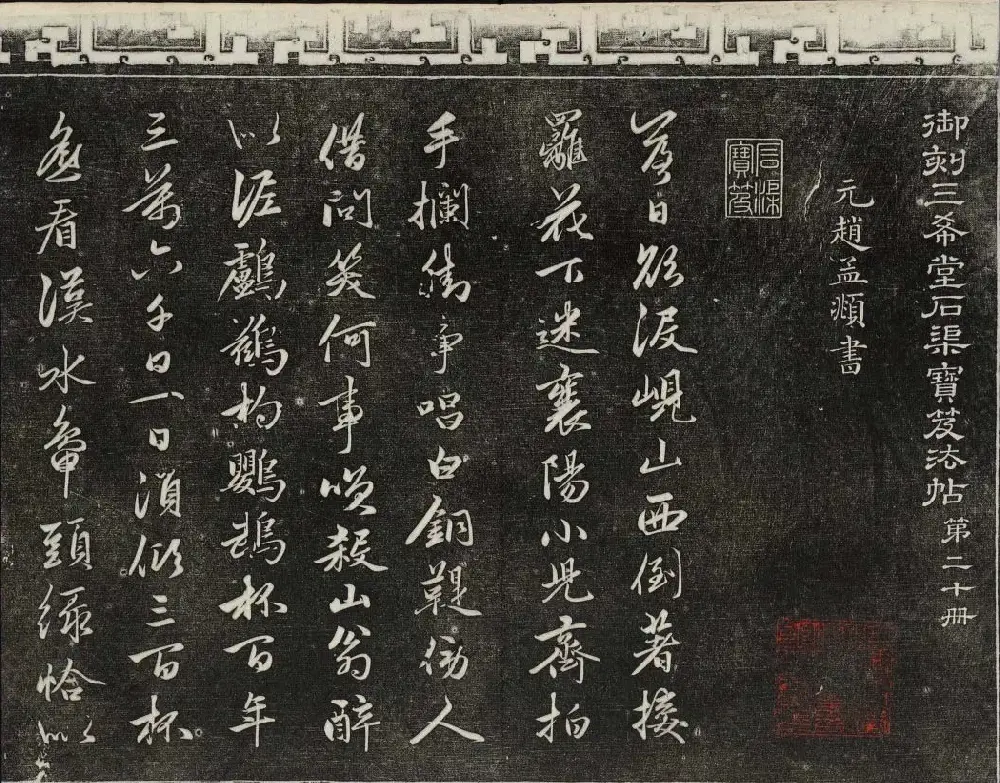 御刻三希堂石渠寶笈法帖 第二十冊
元趙孟頫書
石渠寶笈
落日欲没峴山西倒著接
䍦花下迷襄陽小兒齊拍
手攔街争唱白銅鞮傍人
借問笑何事咲殺山翁醉
似泥鸕鷀杓鸚鵡杯百年
三萬六千日一日須傾三百杯
遥看漢水鴨頭緑恰似